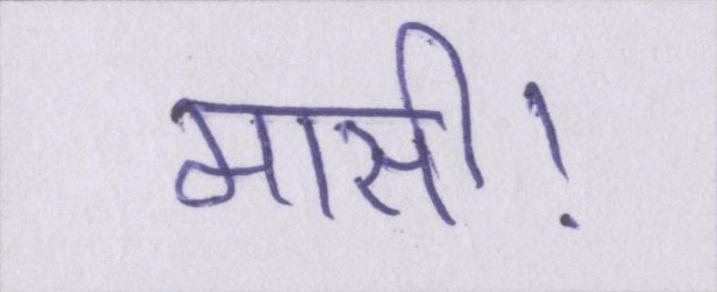 मासी!